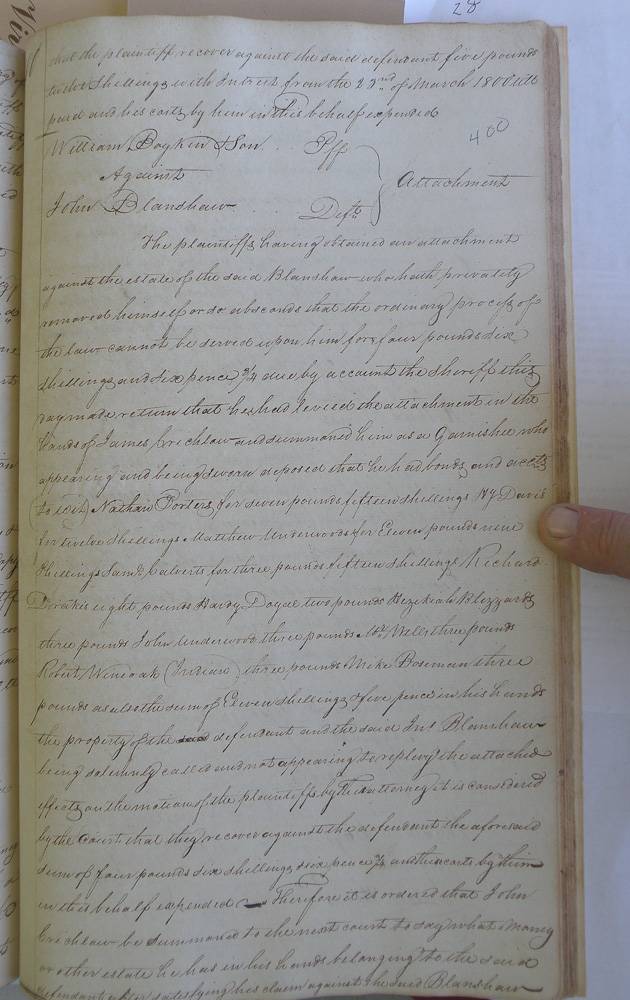 28
that the plaintiff recover against the said defendant five pounds
twelve Shillings with Interest from the 23nd of March 1800 till
paid and his costs by him in this behalf expended
400
William Boykin & Son . . Plff
Against
Attachment
John Blanshaw . . Deft
The plaintiffs having obtained an attachment
against the estate of the said Blanshaw who hath privately
removed himself or so absconds that the ordinary process of
the law cannot be served upon him for four pounds six
shillings and six pence ¾ due by account the Sheriff this
day made return that he had levied the attachment in the
hands of James Crichlow and summoned him as a Garnishee who
appearing and being sworn deposed that he had bonds and accts
(to wit) Nathan Porters for seven pounds fifteen shillings Davis
for twelve Shillings Matthew Underwoods for Eleven pounds nine
Shillings Saml Calverts for three pounds fifteen shillings Richard
eight pounds Hardy Doyal two pounds Hezekiah Blizzards
three pounds John Underwood three pounds Wells three pounds
Robert Wineoak (Indian) three pounds Mike Boseman three
pounds as also the sum of Eleven shillings & five pence in his hands
the property of the defendant and the said Jno Blanshaw
being solemnly called and not appearing to replevy the attached
effects on the motion of the plaintiffs by their attorney it is considered
by the Court that they recover against the defendant the aforesaid
sum of four pounds six shillings & six pence ¾ and their costs by them
in this behalf expended Therefore it is ordered that John
Crichlow be summoned to the next court to say what money
or other estate he has in his hands belonging to the said
defendant after satisfying his claim against the said Blanshaw